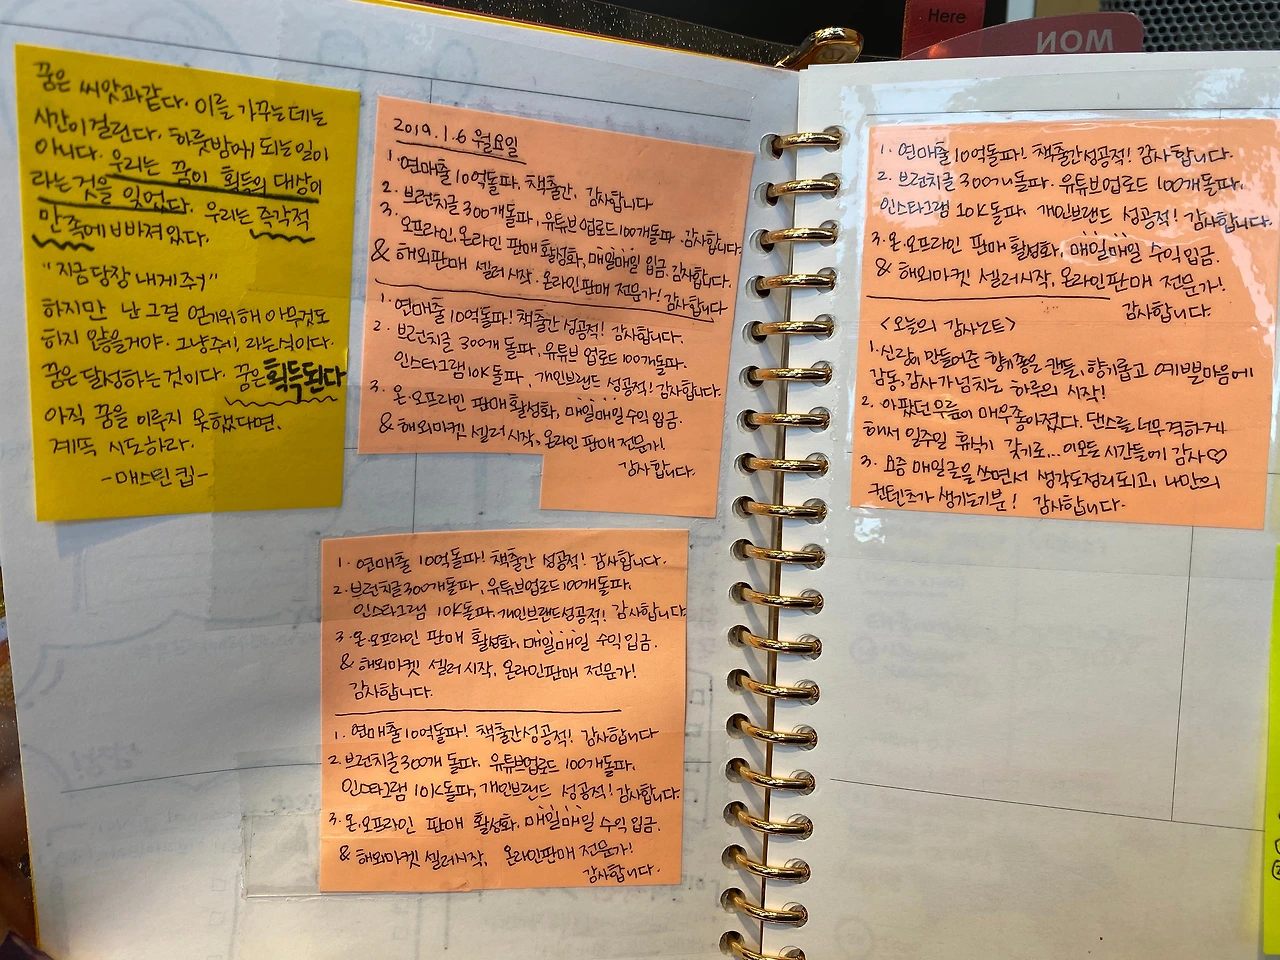 Here
MON
꿈은 씨앗과같다. 이를 가꾸는데는
시간이걸린다. 하룻밤에 되는일이
아니다. 우리는 꿈이 획득의 대상이
라는것을 잊었다. 우리는 즉각적
만족에 빠져있다.
"지금당장 내게줘"
하지만 난 그걸 얻기위해 아무것도
하지 않을거야. 그냥줘!, 라는식이다.
꿈은 달성하는 것이다. 꿈은획득된다
아직 꿈을 이루지 못했다면,
계속 시도하라.
-매스틴 킵-
2019.1.6 월요일
1. 연매출 10억돌파. 책출간, 감사합니다
2. 브런치글 300개돌파, 유튜브 업로드100개돌파. 감사합니다.
3. 오프라인, 온라인 판매 활성화, 매일매일 입금. 감사합니다.
& 해외판매 셀러 시작, 온라인판매 전문가! 감사합니다
1. 연매출 10억돌파! 책출간 성공적! 감사합니다.
2. 브런치글 300개 돌파, 유튜브 업로드 100개돌파.
인스타그램 10K 돌파, 개인브랜드 성공적! 감사합니다.
3. 온.오프라인 판매 활성화, 매일매일 수익 입금.
& 해외마켓 셀러 시작, 온라인판매 전문가.
감사합니다.
1. 연매출 10억돌파! 책출간 성공적! 감사합니다.
2. 브런치글 300개돌파, 유튜브업로드 100개돌파.
인스타그램 10K돌파, 개인브랜드성공적! 감사합니다.
3. 온.오프라인 판매 활성화, 매일매일 수익 입금.
& 해외마켓 셀러 시작, 온라인판매 전문가!
감사합니다.
1. 연매출 10억돌파! 책출간성공적! 감사합니다
2. 브런치글 300개 돌파. 유튜브업로드 100개돌파.
인스타그램 10K돌파, 개인브랜드 성공적! 감사합니다.
3. 온.오프라인 판매 활성화. 매일매일 수익 입금.
& 해외마켓 셀러시작, 온라인판매 전문가!
감사합니다.
1. 연매출 10억돌파! 책출간성공적! 감사합니다.
2. 브런치글 300개돌파. 유튜브업로드 100개돌파.
인스타그램 10K돌파. 개인브랜드 성공적! 감사합니다.
3. 온.오프라인 판매 활성화, 매일매일 수익입금.
& 해외마켓 셀러시작, 온라인판매 전문가!
감사합니다.
<오늘의 감사노트>
1. 신랑이 만들어준 향기좋은 캔들, 향기롭고 예쁜마음에
감동, 감사가넘치는 하루의 시작!
2. 아팠던 무릎이 매우좋아졌다. 댄스를 너무 격하게
해서 일주일 휴식기 갖기로... 이모든 시간들에 감사♡
3. 요즘 매일글을 쓰면서 생각도정리되고, 나만의
컨텐츠가 생기는기분! 감사합니다.